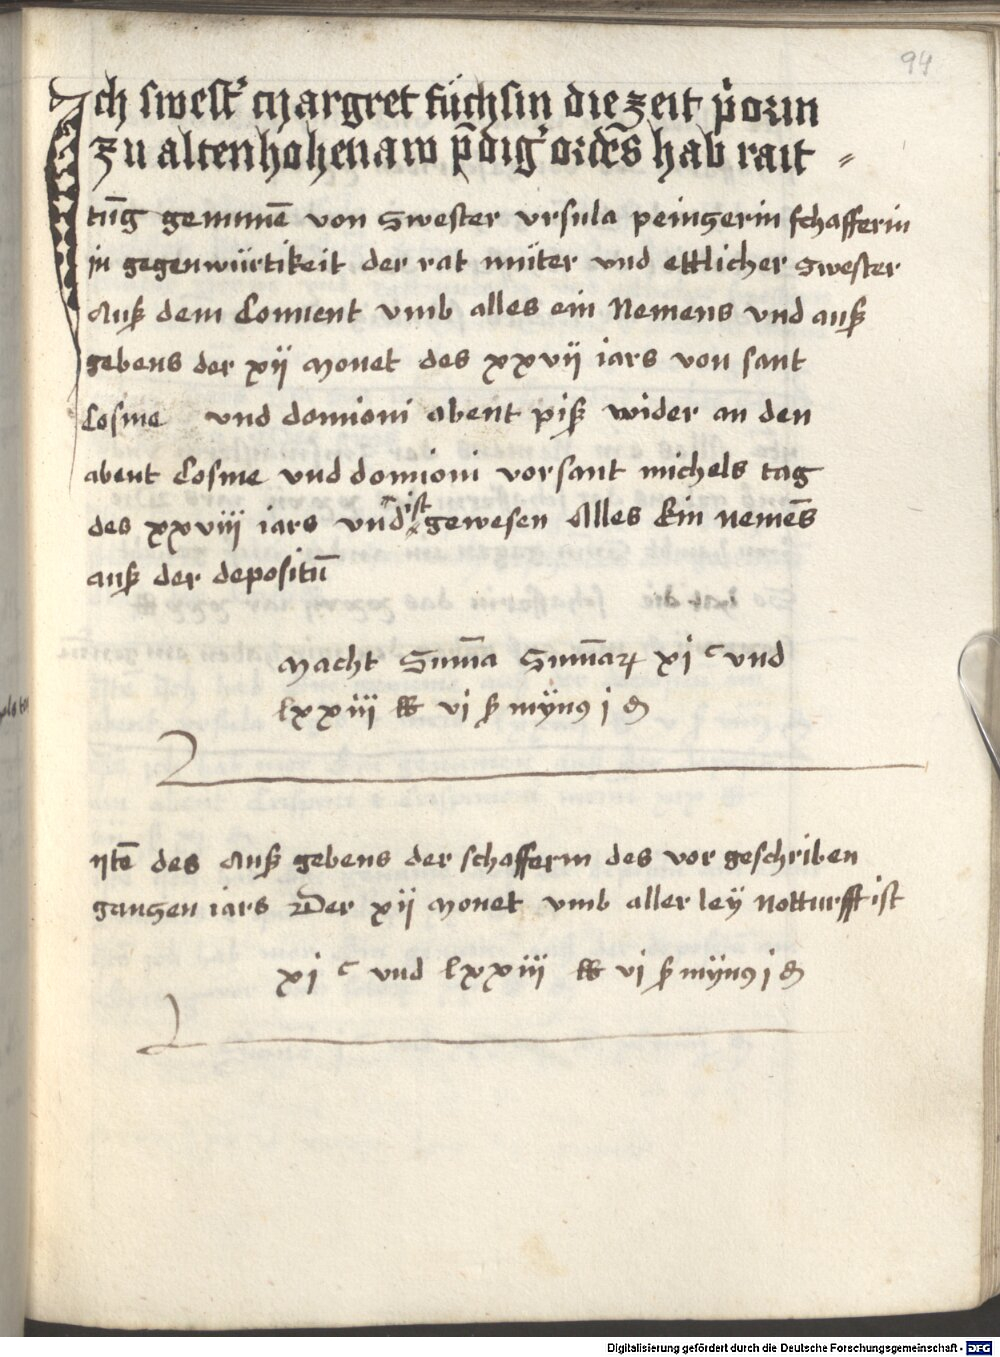 94
Ich swest' Margret füchsin die zeit p'orin
zu altenhohenaw p̄dig' ordēs hab rait =
tūg genumē von Swester vrsula peingerin schafferin
jn gegenwürtikeit der rat müter vnd ettlicher Swester
Auß dem Conuent vmb alles ein Nemens vnd auß
gebens der xij Monet des xxvij iars von sant
Cosme vnd domioni abent piß wider an den
abent Cosme vnd domioni vor sant michels tag
des xxviii iars vnd ist gewesen Alles Ein nemēs
auß der depositū
Macht Sum̄a Sum̄aꝝ xj c vnd
lxxiii ℔ vj ß mynꝰ j ₰
Itē des Auß gebens der schafferin des vor geschriben
ganczen iars Der xij Monet vmb aller ley Notturfft ist
xj c vnd lxxiii ℔ vj ß mynꝰ j ₰
Digitalisierung gefördert durch die Deutsche Forschungsgemeinschaft - DFG